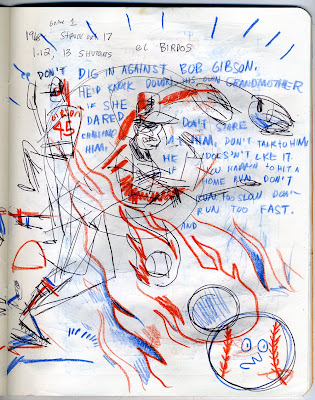 GAME 1
1968 STRUCK OUT 17
1.12, 13 SHUTOUTS EL BIRDOS
DON'T DIG IN AGAINST BOB GIBSON,
HE'D KNOCK DOWN HIS OWN GRANDMOTHER
IF SHE
DARED
HIM. DON'T STARE
AT HIM, DON'T TALK TO HIM
HE DOESN'T LIKE IT
IF YOU HAPPEN TO HIT A
HOME RUN DON'T
RUN TOO SLOW DON'T
RUN TOO FAST.
AND
45